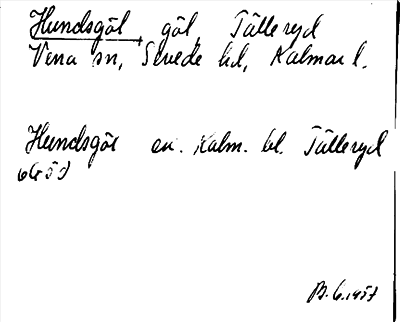 Hundsgöl göl, Tälleryd
Vena sn, Sevede hd, Kalmar l.
Hundsgöl en. Kalm. bl. Tälleryd
B. 6.1957